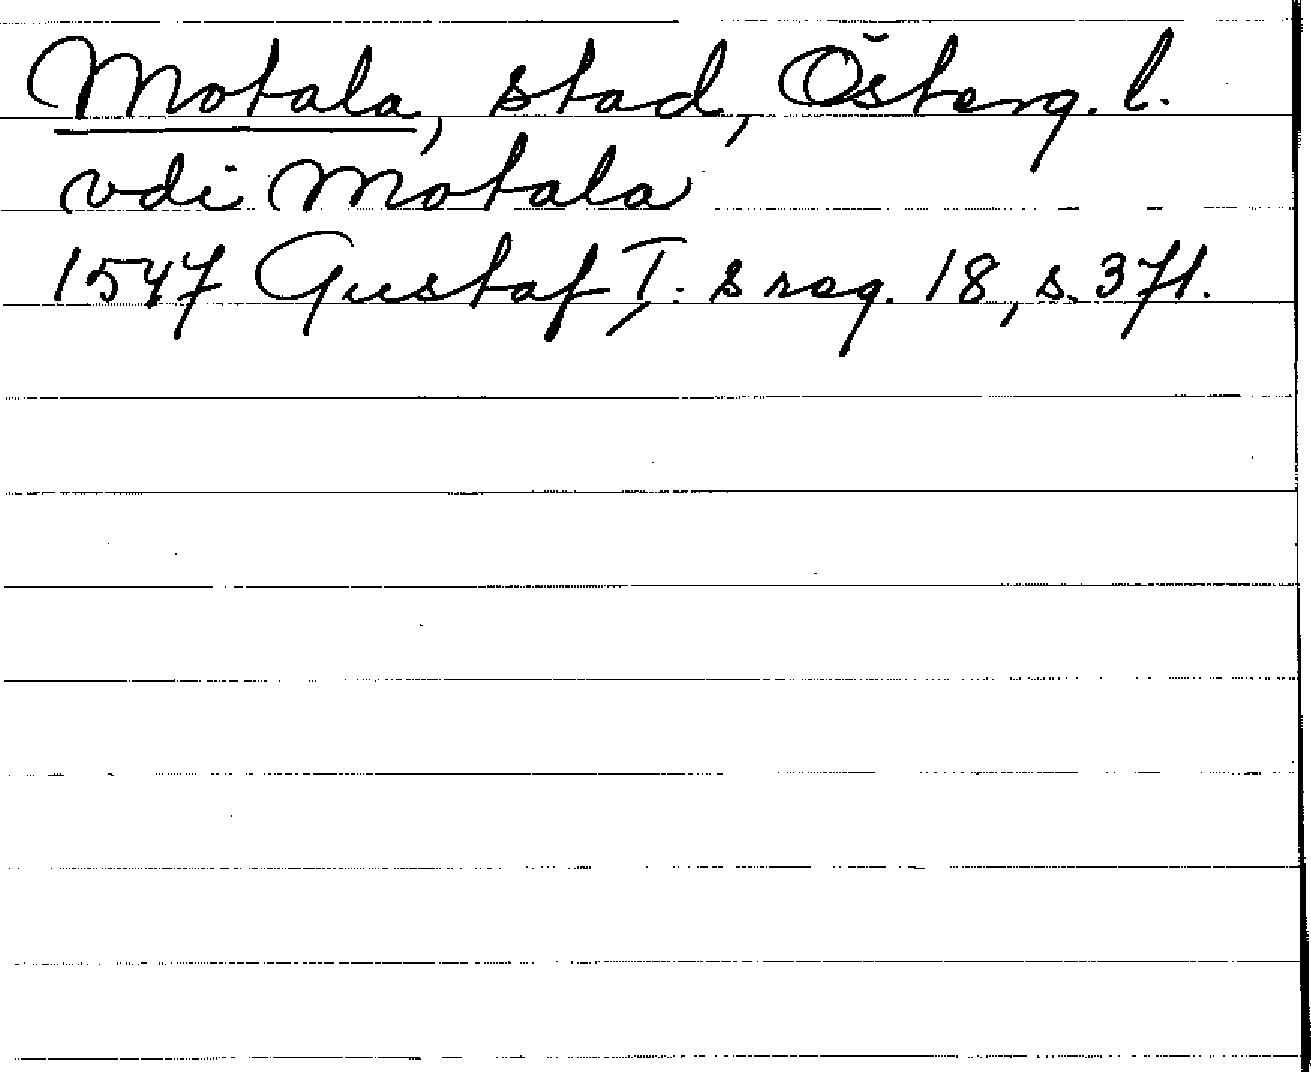 Motala, stad, Österg. l.
vdi Motala
1547 Gustaf I:s reg. 18, s. 371.